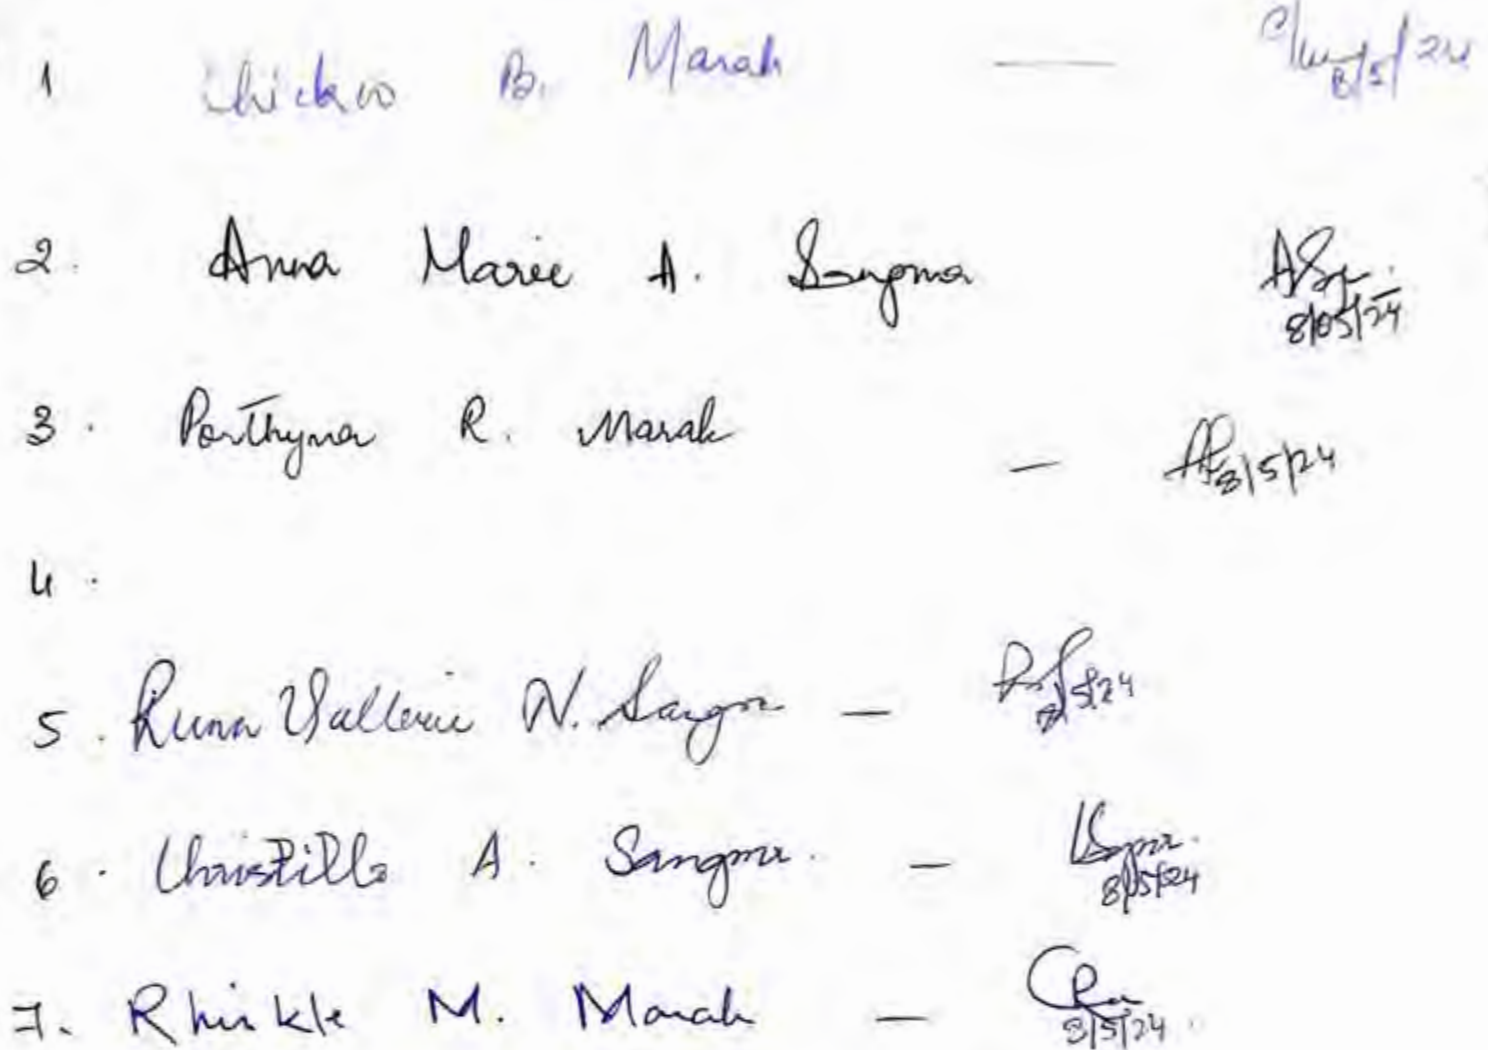 1 Chickoo B. Marak — 8/5/24
2. Anna Marie A. Sangma 8/05/24
3. Porthyna R. Marak — 8/5/24
4.
5. Runa Vallerie N. Sangma — 8/5/24
6. Christilla A. Sangma. — 8/5/24
7. Rhinkle M. Marak — 8/5/24